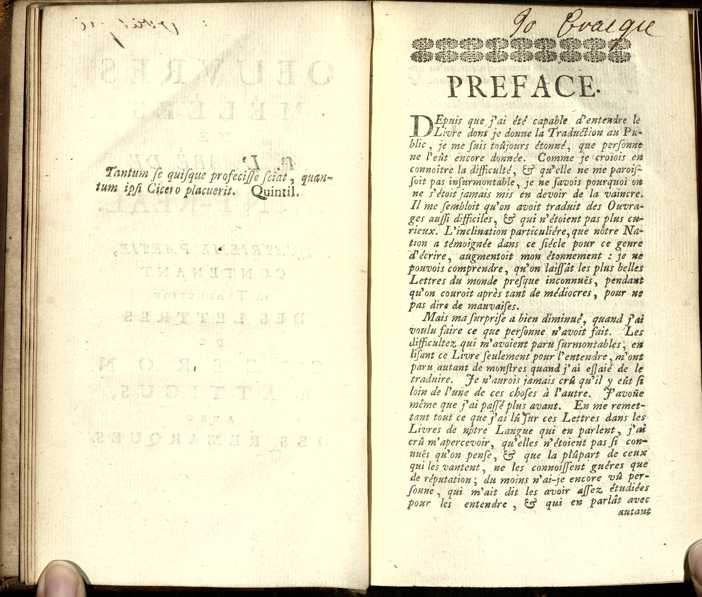 Tantum se quisque profecisse sciat, quan-
tum ipsi Cicero placuerit. Quintil.
PREFACE.
DEpuis que j'ai été capable d'entendre le
Livre dont je donne la Traduction au Pu-
blic, je me suis toûjours étonné, que personne
ne l'eût encore donnée. Comme je croiois en
connoitre la difficulté, & qu'elle ne me parois-
soit pas insurmontable, je ne savois pourquoi on
ne s'étoit jamais mis en devoir de la vaincre.
Il me sembloit qu'on avoit traduit des Ouvra-
ges aussi difficiles, & qui n'étoient pas plus cu-
rieux. L'inclination particuliére, que nôtre Na-
tion a témoignée dans ce siécle pour ce genre
d'écrire, augmentoit mon étonnement: je ne
pouvois comprendre, qu'on laissât les plus belles
Lettres du monde presque inconnuës, pendant
qu'on couroit après tant de médiocres, pour ne
pas dire de mauvaises.
Mais ma surprise a bien diminué, quand j'ai
voulu faire ce que personne n'avoit fait. Les
difficultez qui m'avoient paru surmontables, en
lisant ce Livre seulement pour l'entendre, m'ont
paru autant de monstres quand j'ai essaié de le
traduire. Je n'aurois jamais crû qu'il y eût si
loin de l'une de ces choses à l'autre. J'avoüe
même que j'ai passé plus avant. En me remet-
tant tout ce que j'ai lû sur ces Lettres dans les
Livres de nôtre Langue qui en parlent, j'ai
crû m'apercevoir, qu'elles n'étoient pas si con-
nuës qu'on pense, & que la plûpart de ceux
qui les vantent, ne les connoissent guéres que
de réputation; du moins n'ai-je encore vû per-
sonne, qui m'ait dit les avoir assez étudiées
pour les entendre, & qui en parlât avec
autant